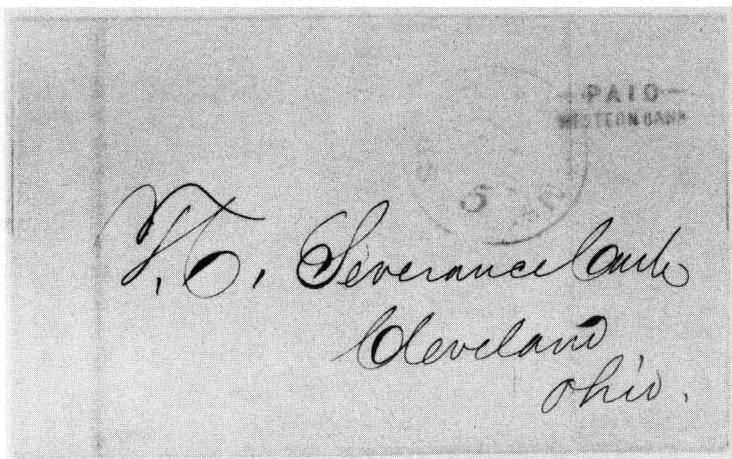 - PAID -
WESTERN BANK
5
T. C. Severance Cash
Cleveland
Ohio.